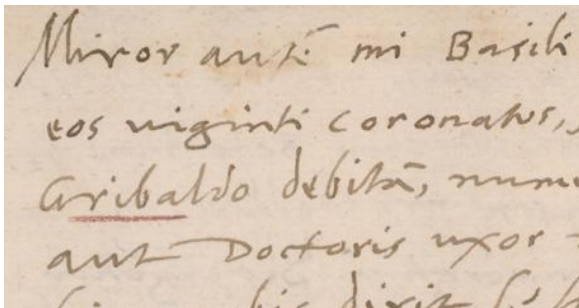 Miror autē mi Basili
eos viginti coronatos,
Gribaldo debitā,
aut Doctoris uxor
dixit